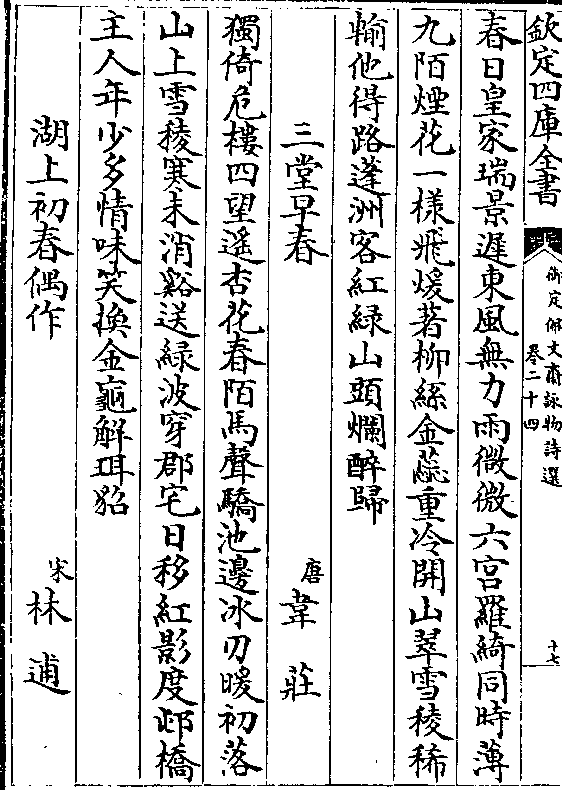 欽定四庫全書
御定佩文齋詠物詩選
卷二十四
十七
春日皇家瑞景遲東風無力雨微微六宮羅綺同時薄
九陌煙花一樣飛煖著柳絲金蕊重冷開山翠雪稜稀
輸他得路蓬洲客紅綠山頭爛醉歸
三堂早春
唐
韋莊
獨倚危樓四望遙杏花春陌馬聲驕池邊冰刃暖初落
山上雪稜寒未消谿送綠波穿郡宅日移紅影度邨橋
主人年少多情味笑換金龜解珥貂
湖上初春偶作
宋
林逋